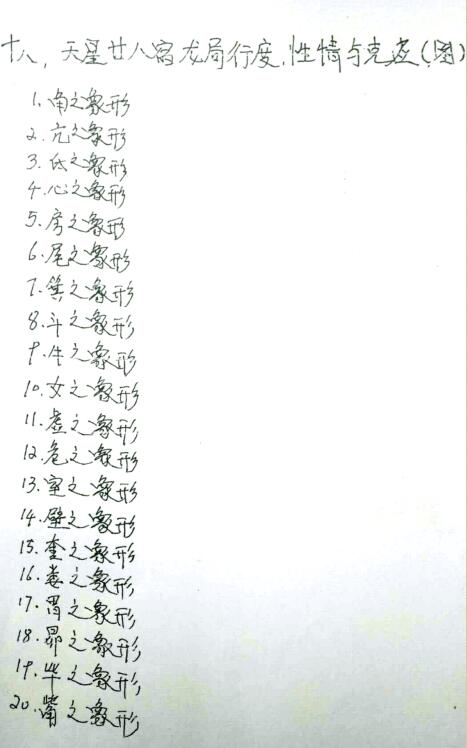 十八, 天星廿八宿龙局行度,性情与克应(图)
1.角之象形
2.亢之象形
3.氐之象形
4.心之象形
5.房之象形
6.尾之象形
7.箕之象形
8.斗之象形
9.牛之象形
10.女之象形
11.虚之象形
12.危之象形
13.室之象形
14.壁之象形
15.奎之象形
16.娄之象形
17.胃之象形
18.昴之象形
19.毕之象形
20.觜之象形